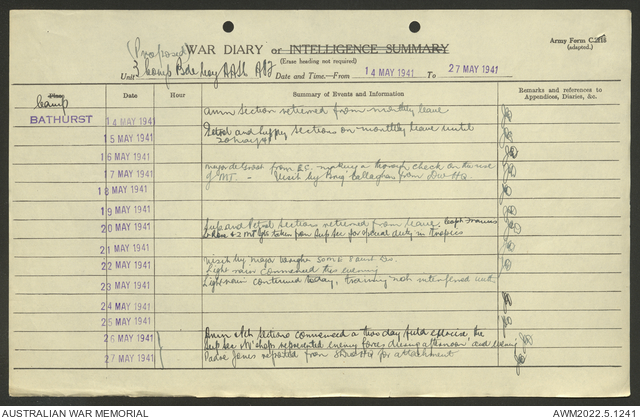 (Proposed) WAR DIARY or INTELLIGENCE SUMMARY
Army Form C.2118
(adapted.)
(Erase heading not required)
Unit 3 Comp Bde Coy AASC AIF Date and Time—From 14 MAY 1941 To 27 MAY 1941
Place Date Hour Summary of Events and Information Remarks and references to
Appendices, Diaries, &c.
Camp
BATHURST 14 MAY 1941 Amm section returned from monthly leave
15 MAY 1941 Petrol and supply sections on monthly leave until
20 May 41
16 MAY 1941 Major from making a thorough check on the use
17 MAY 1941 of MT. - Visit by Brig Callaghan from Div HQ.
18 MAY 1941
19 MAY 1941
20 MAY 1941 Sup and Petrol Sections returned from leave. Capt Francis
& 2 taken from Sup Sec for special duty in tropics
21 MAY 1941
22 MAY 1941 Visit by Major
Light rain commenced this evening
23 MAY 1941 Light rain continued today, training not interfered with
24 MAY 1941
25 MAY 1941
26 MAY 1941 Amm Sections commenced a two day field exercise the
Sup Sec W'shops represented enemy forces during afternoon and evening
27 MAY 1941 Padre Jones reported from HQ for attachment
AUSTRALIAN WAR MEMORIAL AWM2022.5.1241